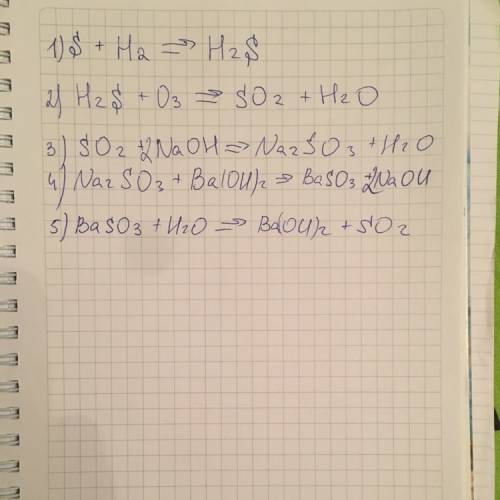 1) S + H2 => H2S
2) H2S + O3 => SO2 + H2O
3) SO2 + 2NaOH => Na2SO3 + H2O
4) Na2SO3 + Ba(OH)2 => BaSO3 + 2NaOH
5) BaSO3 + H2O => Ba(OH)2 + SO2